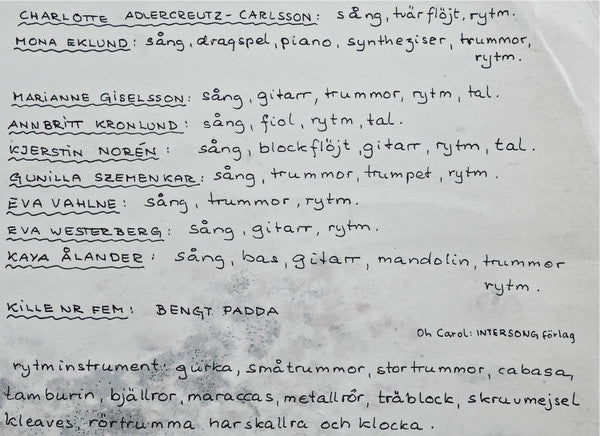 CHARLOTTE ADLERCREUTZ-CARLSSON: sång, tvärflöjt, rytm.
MONA EKLUND: sång, dragspel, piano, syntheziser, trummor,
rytm.
MARIANNE GISELSSON: sång, gitarr, trummor, rytm, tal.
ANNBRITT KRONLUND: sång, fiol, rytm, tal.
KJERSTIN NORÉN: sång, blockflöjt, gitarr, rytm, tal.
GUNILLA SZEMENKAR: sång, trummor, trumpet, rytm.
EVA VAHLNE: sång, trummor, rytm.
EVA WESTERBERG: sång, gitarr, rytm.
KAYA ÅLANDER: sång, bas, gitarr, mandolin, trummor
rytm.
KILLE NR FEM: BENGT PADDA
Oh Carol: INTERSONG förlag
rytminstrument: gurka, småtrummor, stortrummor, cabasa,
tamburin, bjällror, maraccas, metallrör, träblock, skruvmejsel
kleaves, rörtrumma harskallra och klocka.